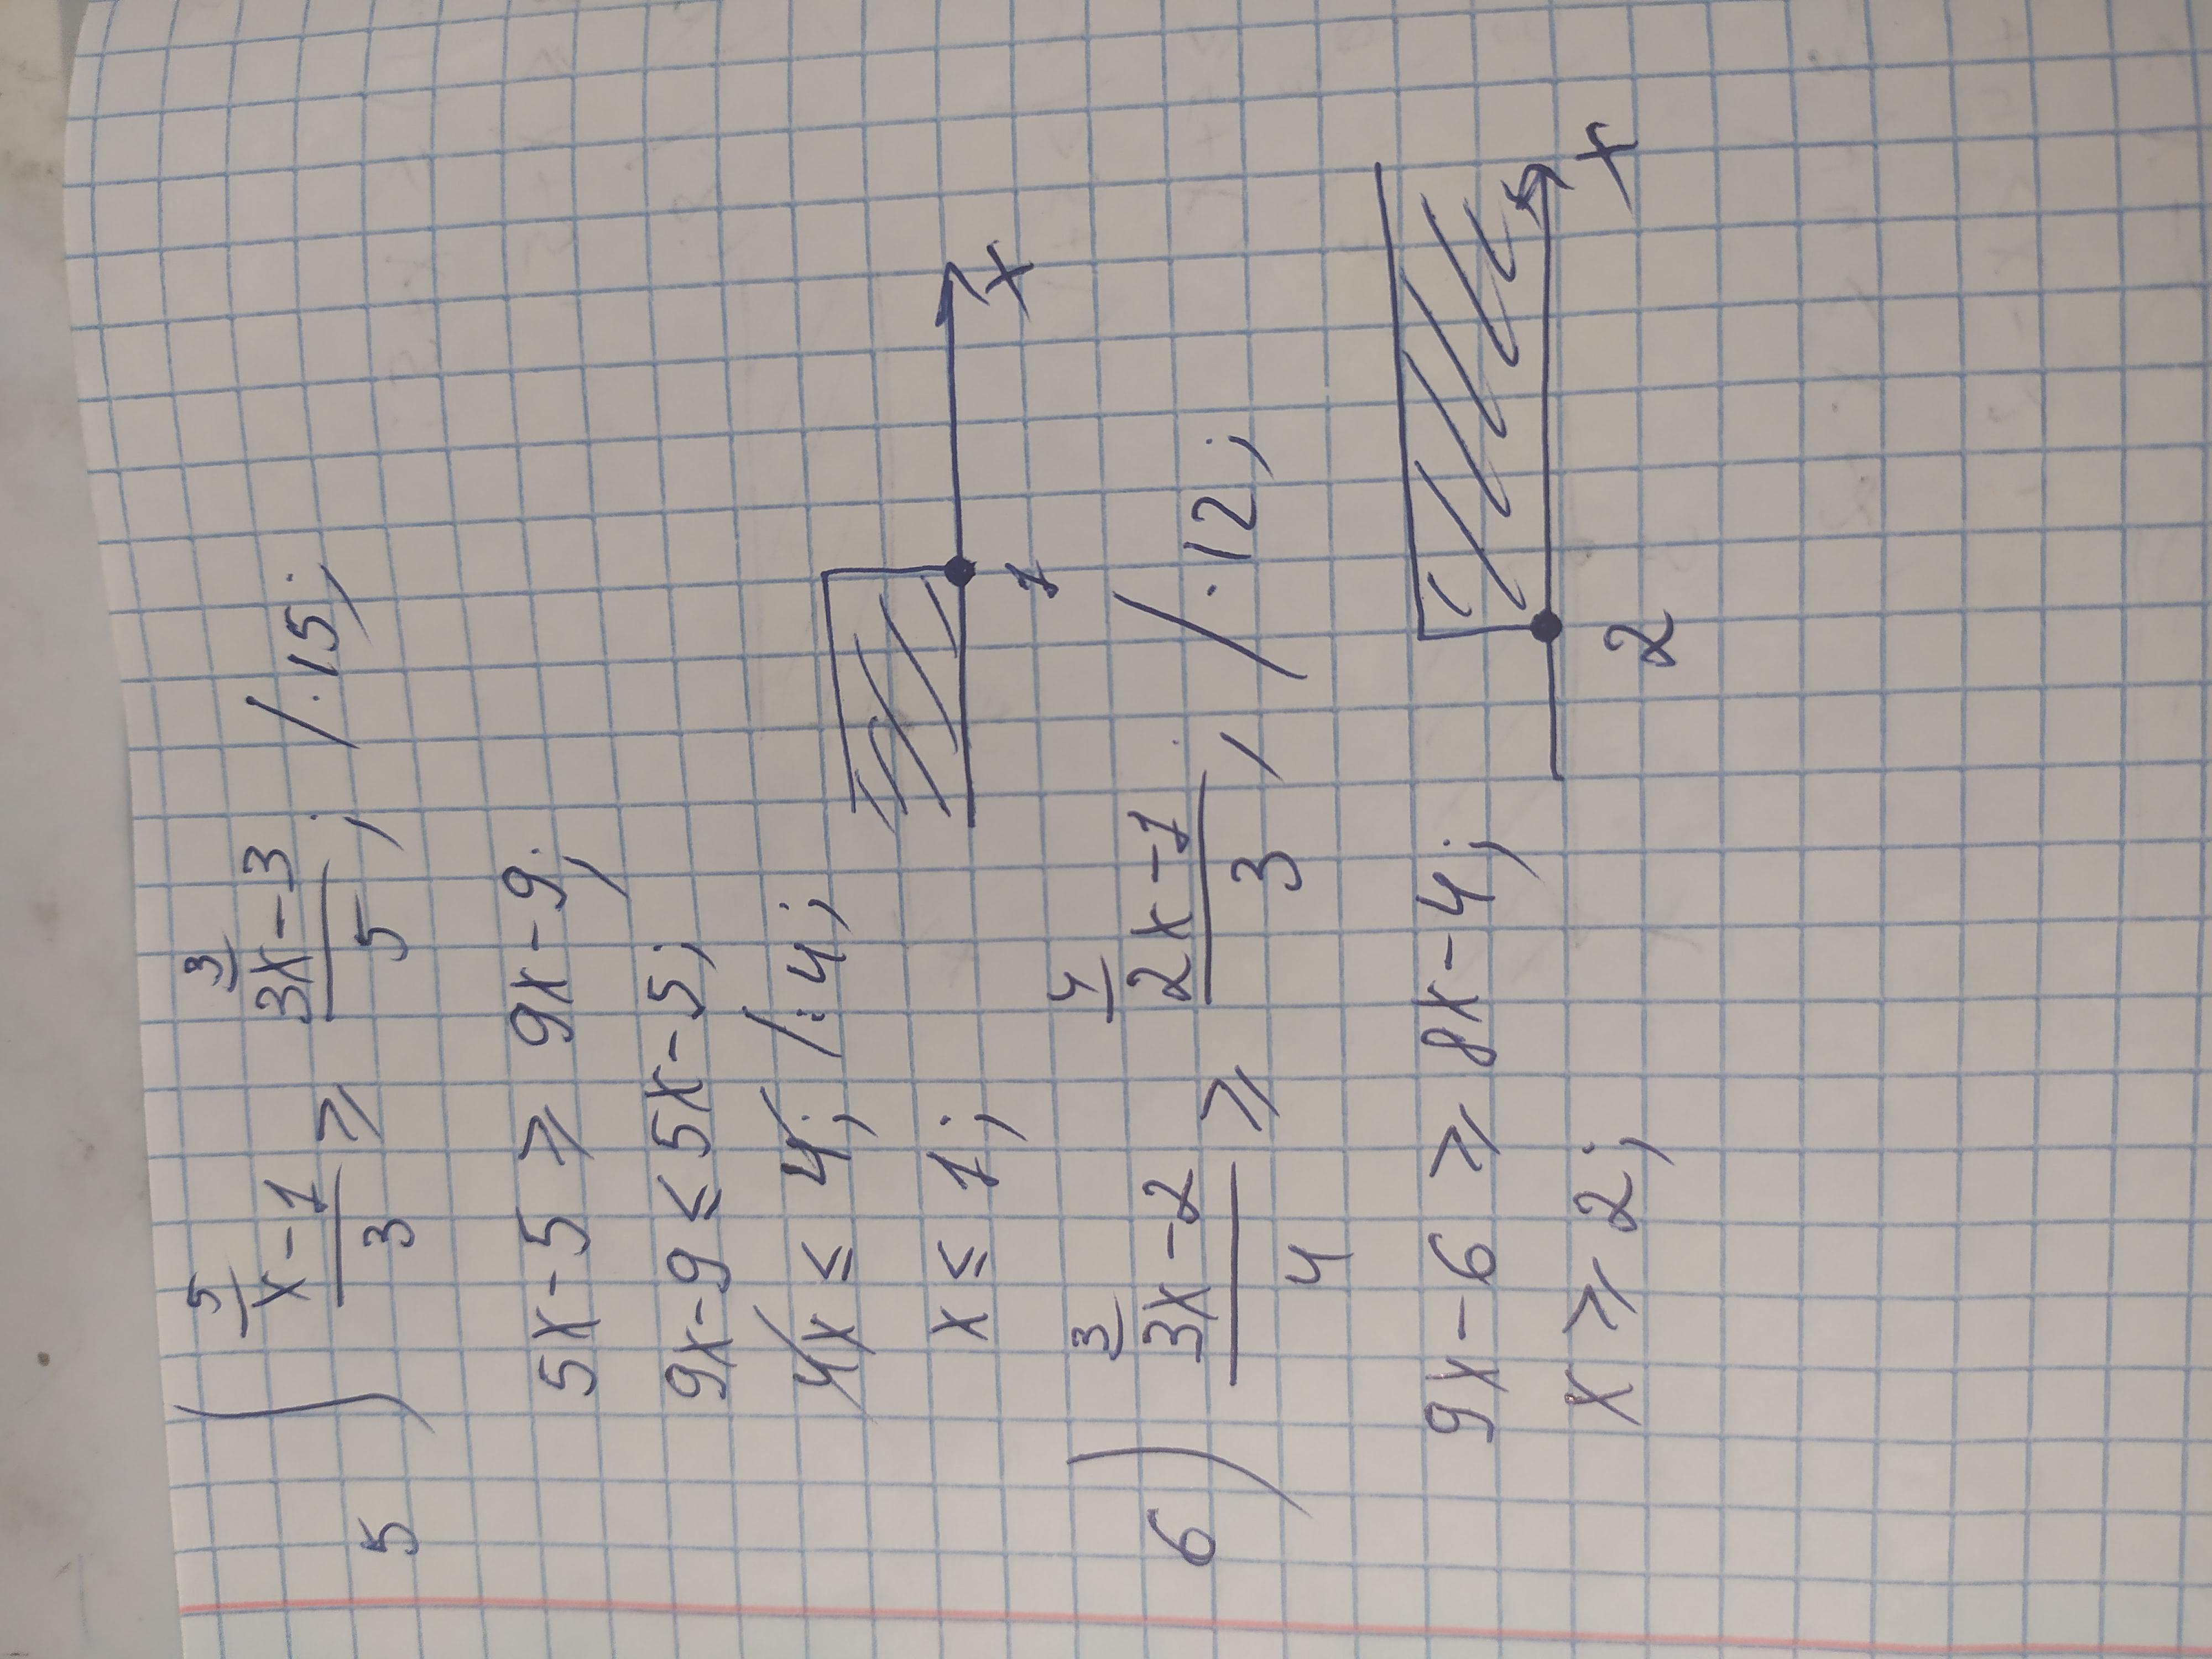 5) 5 x-1/3 ⩾ 3 3x-3/5; /·15;
5x-5 ⩾ 9x-9;
9x-9 ⩽ 5x-5;
4x ⩽ 4; /:4;
x ⩽ 1;
1 x
6) 3 3x-2/4 ⩾ 4 2x-1/3; /·12;
9x-6 ⩾ 8x-4;
x ⩾ 2;
2 x